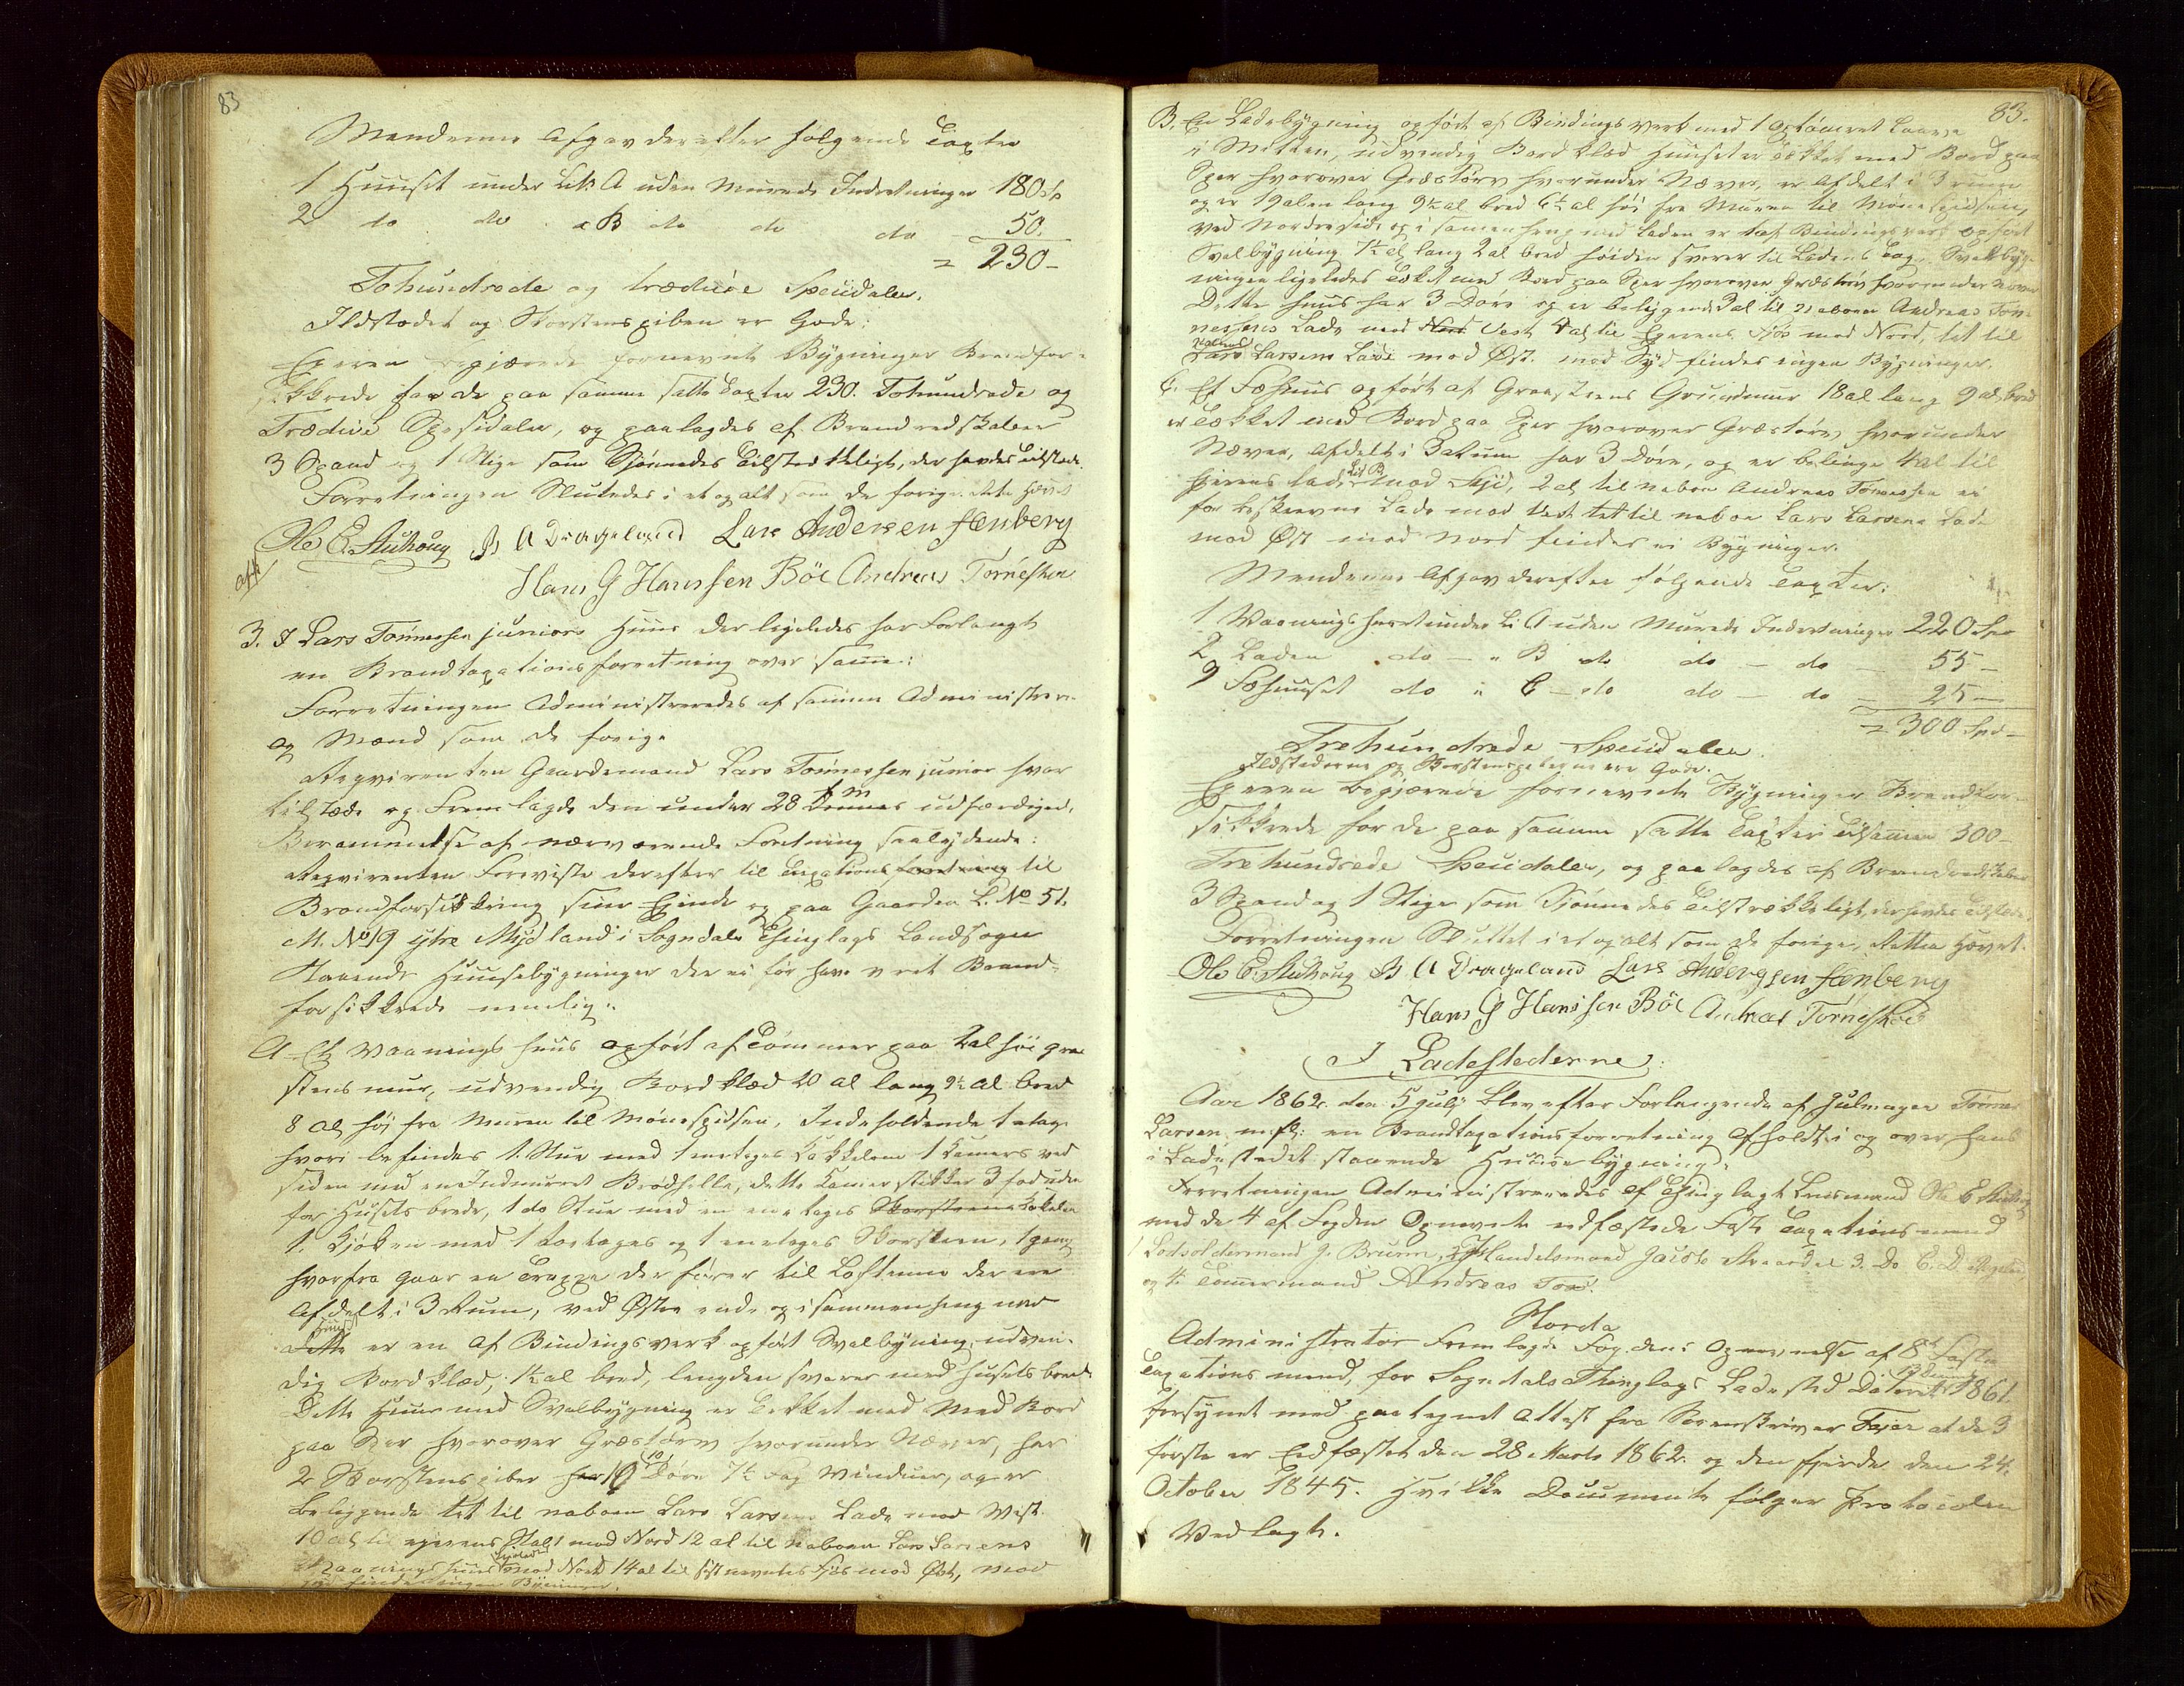 83
Mændene afgav derefter følgende Taxter
1 Huuset under Litr A uden Murede Indretninger 180 Sp
2 do do " B do do do 50.
= 230-
Tohundrede og tredive Speciedaler.
Ildstedet og Skorstenspiben er Gode.
Eieren begjærede fornevnte Bygninger Brandfor-
sikkrede for de paa samme satte Taxter 230. Tohundrede og
Tredive Spesidaler, og paalagdes af Brandredskaber
3 Spand og 1 Stige som Skjønnedes Tilstrækkeligt, der havdes tilstede.
Forretningen Sluttedes i et og alt som de forige. Retten hævet
Ole E. Stuhoug B A Drageland Lars Andersen Fænberg
Hans G Hanssen Böe Andreas Tørresen
3. I Lars Tønnessen juniors Huus der ligeledes har Forlangt
en Brandtaxationsforretning over samme:
Forretningen Administreredes af samme Administrator
og Mænd som de forige
Reqvirenten Gaardmand Lars Tønnessen junior hvar
tilstæde og Fremlagde den under 28 f M udfærdiged,
Berammelse af nærværende Forretning saalydende:
Reqvirenten Foreviste derefter til Taxationsforretning til
Brandforsikkring sine Eiende og paa Gaarden L. No 51.
M. No 19 ytre Mydland i Sogndals Thinglags Landsogn
staaende Huusebygninger der ei før have vært Brand-
forsikkrede nemlig:
A Et Vaaningshuus opført af Tømmer paa 2 al høi graa
stens mur, udvendig Bordklæd 20 al lang 9½ al bred
8 al høi fra Muren til Mønespidsen, Indeholdende 1 etage
hvori befindes 1. Stue med 1 enetages Kakkelovn 1 Kamers ved
siden med en Indmuret Brødhelle, dette Kamer stikker 3 fod uden
for Husets brede, 1 do Stue med en enetages Skorsteens Kakelovn
1. Kjøken med 1 toetages og 1 enetages Skorsteen, 1 gang
hvorfra gaar en Trappe der fører til Lofterne der ere
afdelt i 3 Rum, ved Østre ende og i sammenheng med
dette Huus er en af Bindingsverk opført Svalbyning, udven-
dig Bordklæd, 1½ al bred, lengden svarer med husets brede.
Dette Huus med Svalbygning er Tekket med Bord
paa Sper hvorover Græstørv hvorunder Næver, har
2 Skorstenspiber har 10 Døre 7½ Fag Vinduer, og er
beliggende tet til naboen Lars Larsens Lade mod Vest
10 al til eierens Stald mod Nord 12 al til naboen Lars Larsens
Vaaningshuus ligeledes mod Nord 14 al til sistnevntes Fjøs mod Øst, mod
Syd findes ingen Bygninger.
83.
B. En Ladebygning opført af Bindingsverk med 1 optømret Laave
i Mitten, udvendig Bordklæd Huuset er Tekket med Bord paa
Sper hvorover Græstørv hvorunder Næver, er afdelt i 3 rum
og er 19 alen lang 9½ al bred 6½ al høi fra Muren til Mønespidsen,
ved Nordre side og i sammenheng med Laden er 1 af Bindingsverk opført
Svalbygning 7½ al lang 2 al bred høiden svarer til Ladens Tag, Svalbyg-
ningen ligeledes Tekket med Bord paa Sper hvorover Græstørv hvorunder Næver
Dette huus har 3 Døre og er beliggende 3 al til Naboen Andreas Tøn-
nessens Lade mod Nord Vest 4 al til Eierens Fjøs mod Nord, tet til
Naboens Lars Larsens Lade mod Øst. mod Syd findes ingen Bygninger.
C. Et Fæhuus opført af Graasteens Grundmuur 18 al lang 9 al bred
er Tækket med Bord paa Sper hvorover Græstørv hvorunder
Næver, afdelt i 3 Rum har 3 Døre, og er belinge 4 al til
Eierens Lade Lit B mod Syd, 2 al til naboe Andreas Tønnessen ei
før beskrevne Lade mod Vest tet til naboe Lars Larsens Lade
mod Øst mod Nord findes ei Bygninger.
Mændene afgav derefter følgende Taxter:
1 Vaaningshuset under Li A uden Murede Indretninger 220 Spd
2 Laden do - " B do do - do - 55 -
3 Fæhuuset do " C - do do - do - 25 -
= 300 Spd -
Trehundrede Speciedaler.
Ildstederne og Skorstenspiberne ere Gode.
Eieren begjærede fornevnte Bygninger Brandfor-
sikkrede for de paa samme satte Taxter tilsamen 300 -
Trehundrede Speciedaler, og paalagdes af Brandredskaber
3 Spand og 1 Stige som Skjønnedes Tilstrækkeligt, der havdes tilstede.
Forretningen Sluttet i et og alt som de forige, Retten Hævet.
Ole E. Stuhoug B A Drageland Lars Anderssen Fænberg
Hans G Hanssen Böe Andreas Tørresen
I Ladestederne:
Aar 1862. den 5 July blev efter Forlangende af Hulmager Tønnes
Larsen m.fl: en Brandtaxationsforretning afholdt i og over hans
i Ladestedet staaende Huusebygning.
Forretningen Administreredes af Thinglagets Lensmand Ole E Stuhoug
med de 4 af Fogden Opnevnte edfæstede Faste Taxationsmænd
1 Lodsoldermand J. Bruun, 2 Handelsmand Jacob 3. Do E. D.
og 4 Tømmermand Andreas
Administrator Fremlagde Fogdens Opnevnelse af 8 Faste
Taxationsmænd, for Sogndals Thinglags Ladested Dateret 1861.
forsynet med paategnet Attest fra Sorenskriver Feyer at de 3
første er Eedfæstet den 28 Marts 1862. og den fjerde den 24.
October 1845. Hvilke Documente følger Protocolen
Vedlagt.